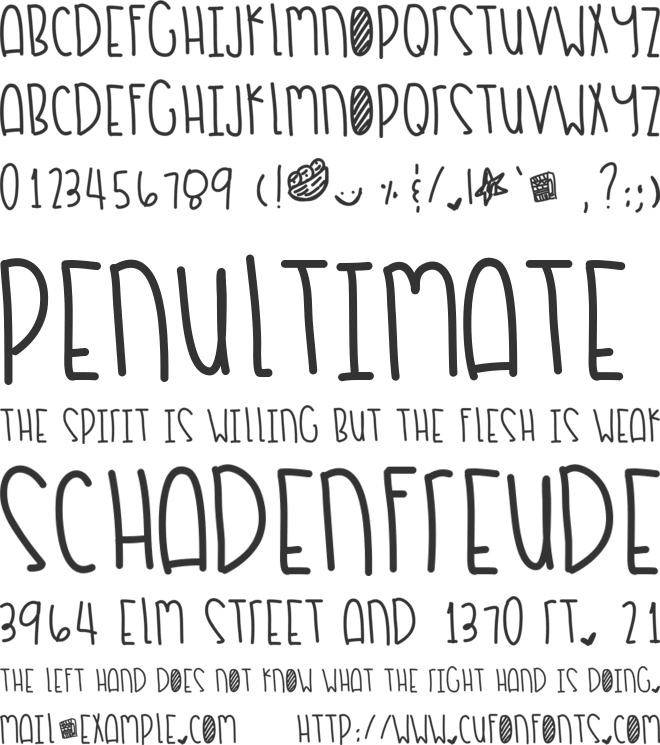 ABCDEFGHIJKLMNOPQRSTUVWXYZ
ABCDEFGHIJKLMNOPQRSTUVWXYZ
0123456789 (! % &/.| * ` ,?:;)
PENULTIMATE
THE SPIRIT IS WILLING BUT THE FLESH IS WEAK
SCHADENFREUDE
3964 ELM STREET AND 1370 RT. 21
THE LEFT HAND DOES NOT KNOW WHAT THE RIGHT HAND IS DOING.
MAIL@EXAMPLE.COM HTTP://WWW.CUFONFONTS.COM